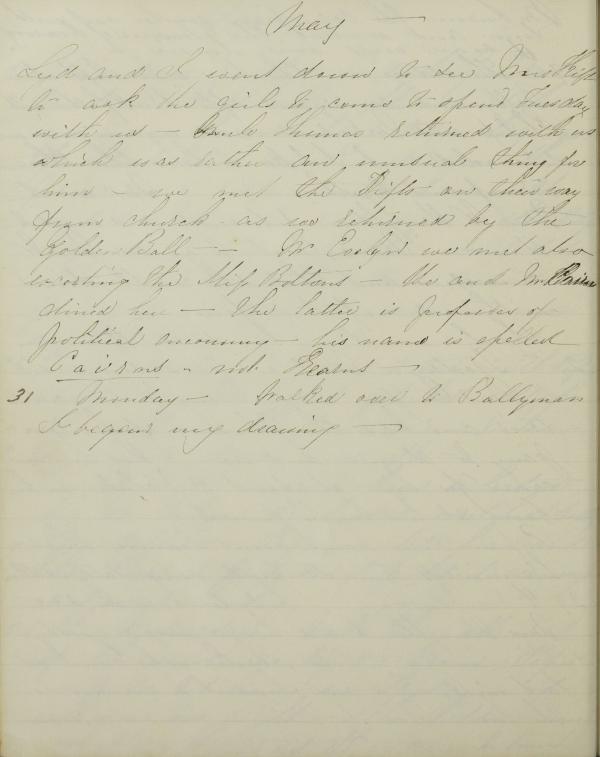 May —
Lyd and I went down to see Mrs
to ask the girls to come to spend Tuesday
with us — Uncle Thomas returned with us
which was rather an unusual thing for
him — we met the Tifts on their way
from church - as we returned by the
Golden Ball — — Mr Evelyn we met also
escorting the Miss Boltons' — He and Mr Cairns
dined here — the latter is professor of
political oeconomy — his name is spelled
Cairns - not Kearns —
31 Monday — walked over to Ballyman
I began my drawing —